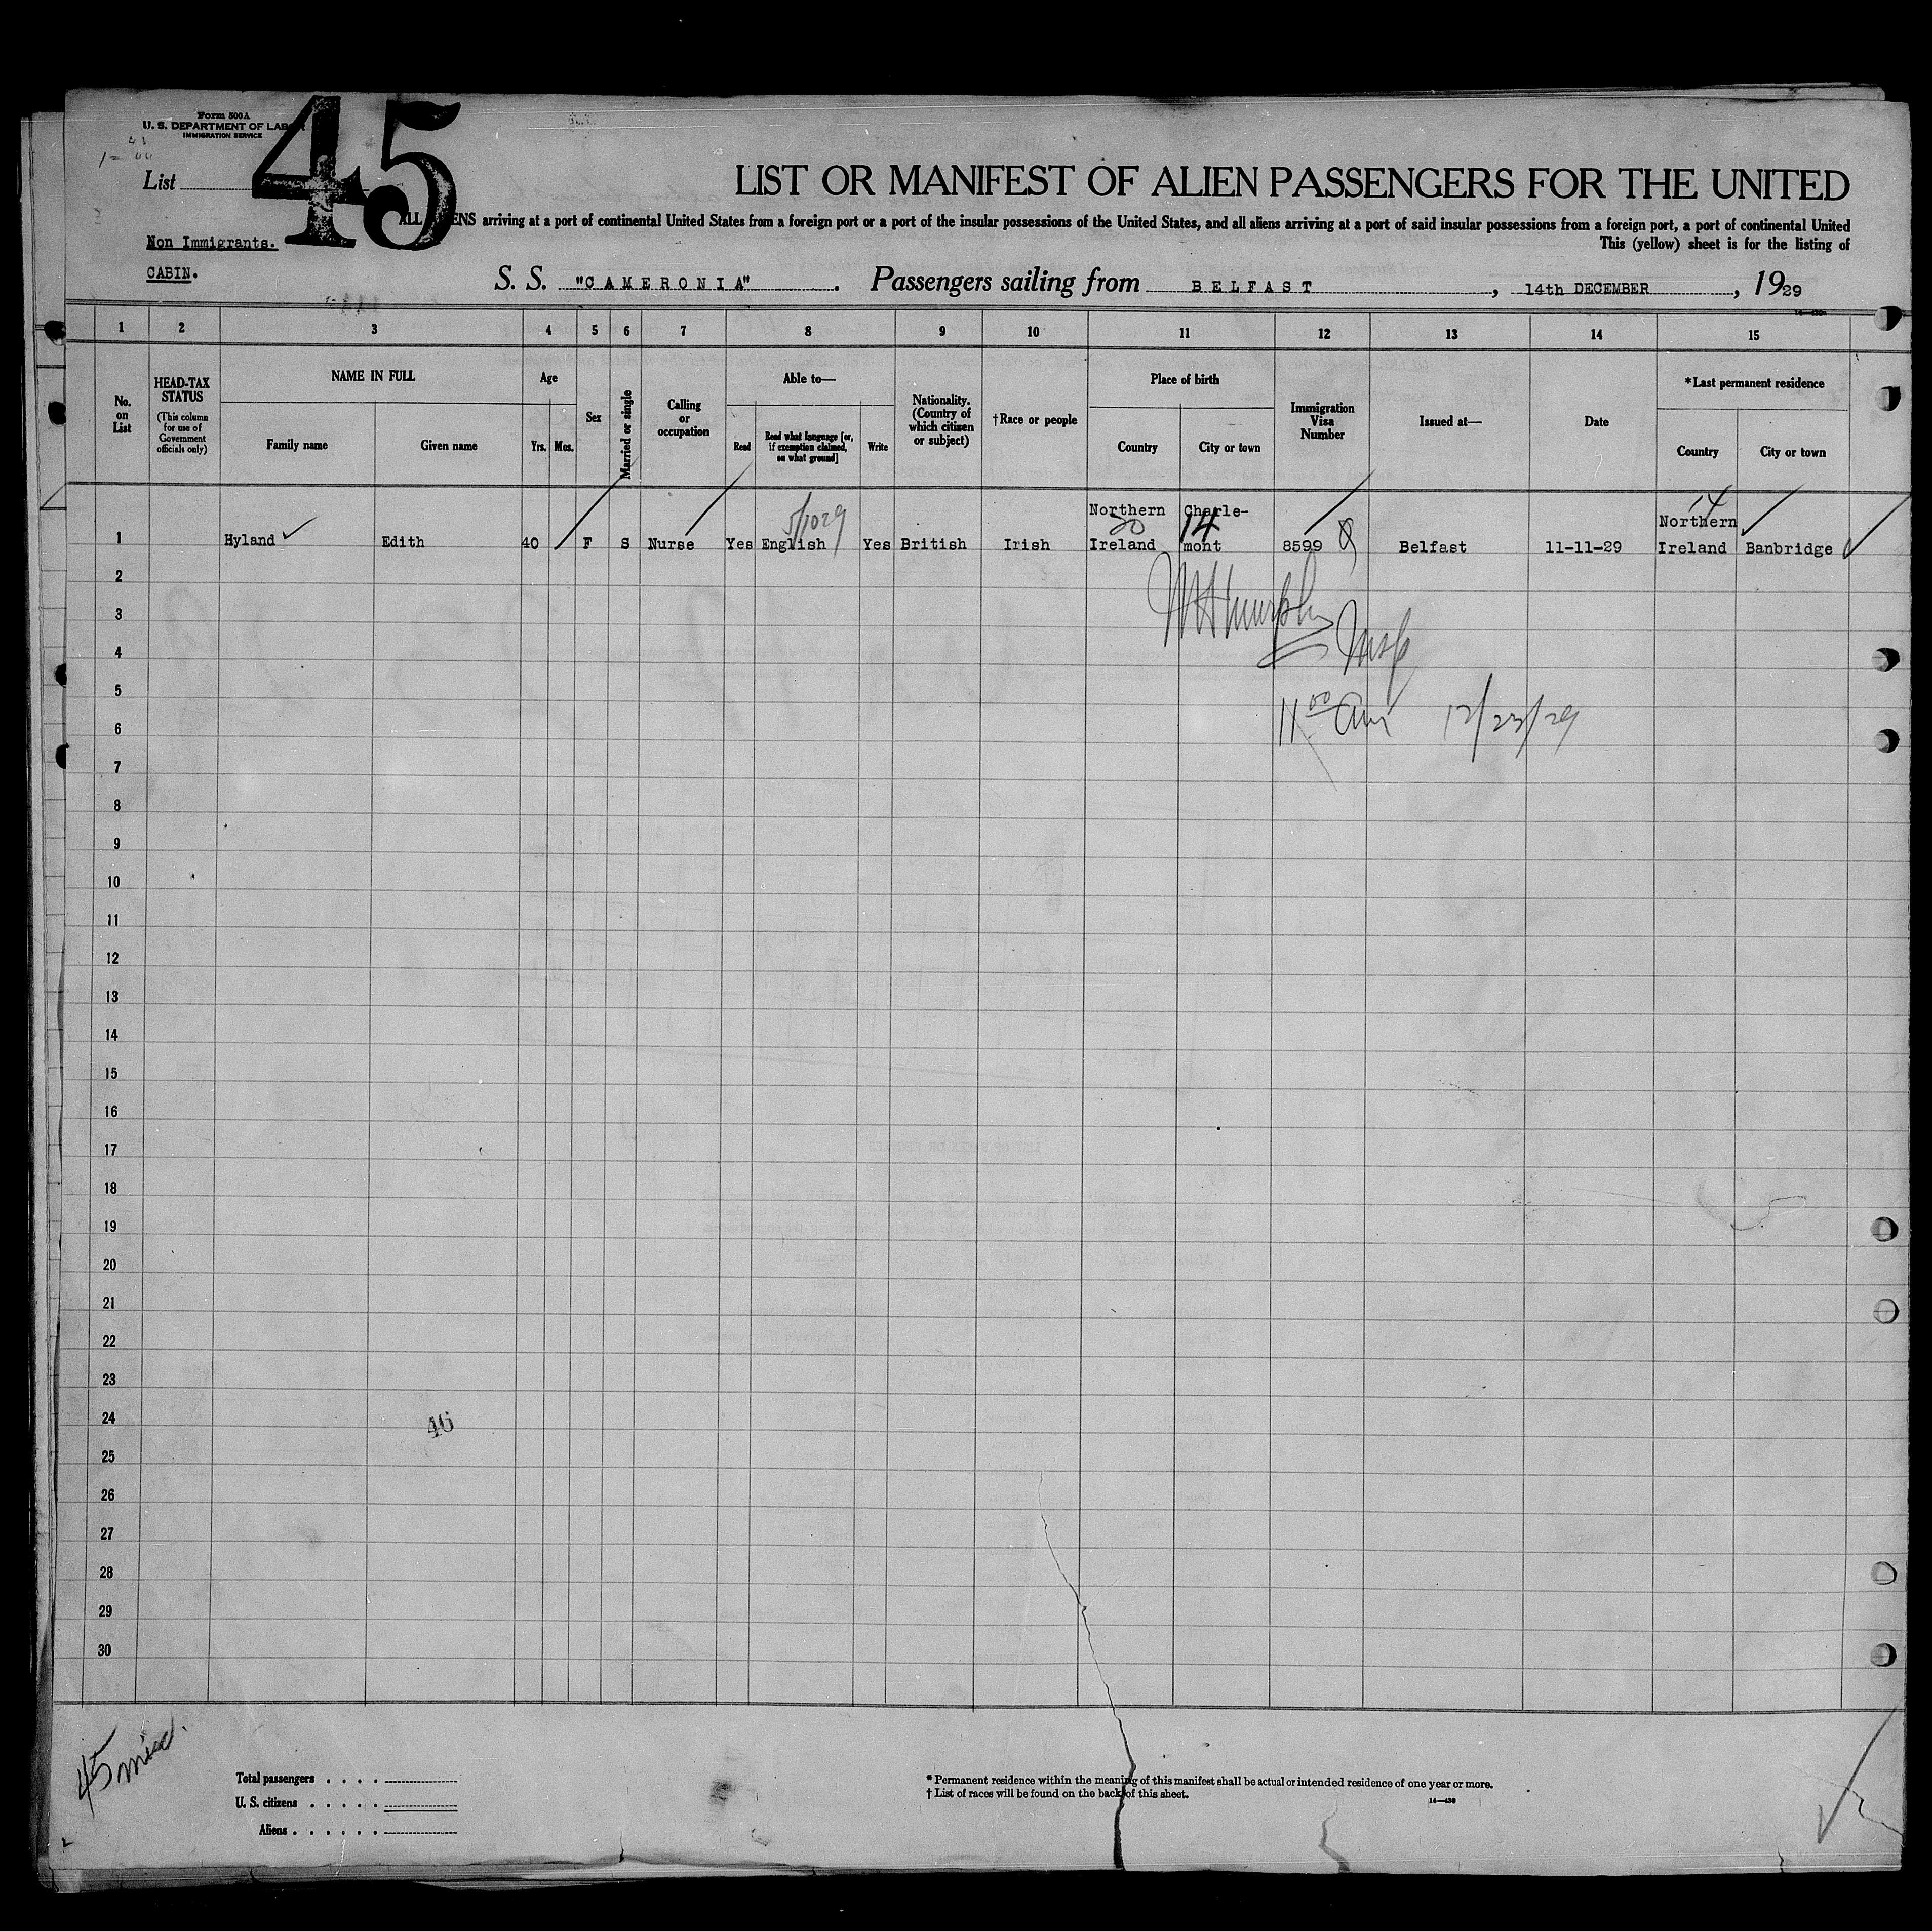 Form 500A
U. S. DEPARTMENT OF LABOR
IMMIGRATION SERVICE
List
45
LIST OR MANIFEST OF ALIEN PASSENGERS FOR THE UNITED
ALL ALIENS arriving at a port of continental United States from a foreign port or a port of the insular possessions of the United States, and all aliens arriving at a port of said insular possessions from a foreign port, a port of continental United
This (yellow) sheet is for the listing of
Non Immigrants.
CABIN.
S. S. "CAMERONIA". Passengers sailing from BELFAST, 14th DECEMBER, 1929
1 2 3 4 5 6 7 8 9 10 11 12 13 14 15
No. on List
HEAD-TAX STATUS
(This column for use of Government officials only)
NAME IN FULL
Family name Given name
Age
Yrs. Mos.
Sex
Married or single
Calling or occupation
Able to—
Read
Read what language [or, if exemption claimed, on what ground]
Write
Nationality. (Country of which citizen or subject)
†Race or people
Place of birth
Country City or town
Immigration Visa Number
Issued at—
Date
*Last permanent residence
Country City or town
1 Hyland Edith 40 F S Nurse Yes English Yes British Irish Northern Ireland Charle-mont 8599 Belfast 11-11-29 Northern Ireland Banbridge
5/1029
20
14
14
2
3
4
5
6
11 00 am 12/23/29
7
8
9
10
11
12
13
14
15
16
17
18
19
20
21
22
23
24
46
25
26
27
28
29
30
45
Total passengers
U. S. citizens
Aliens
* Permanent residence within the meaning of this manifest shall be actual or intended residence of one year or more.
† List of races will be found on the back of this sheet.
14—430